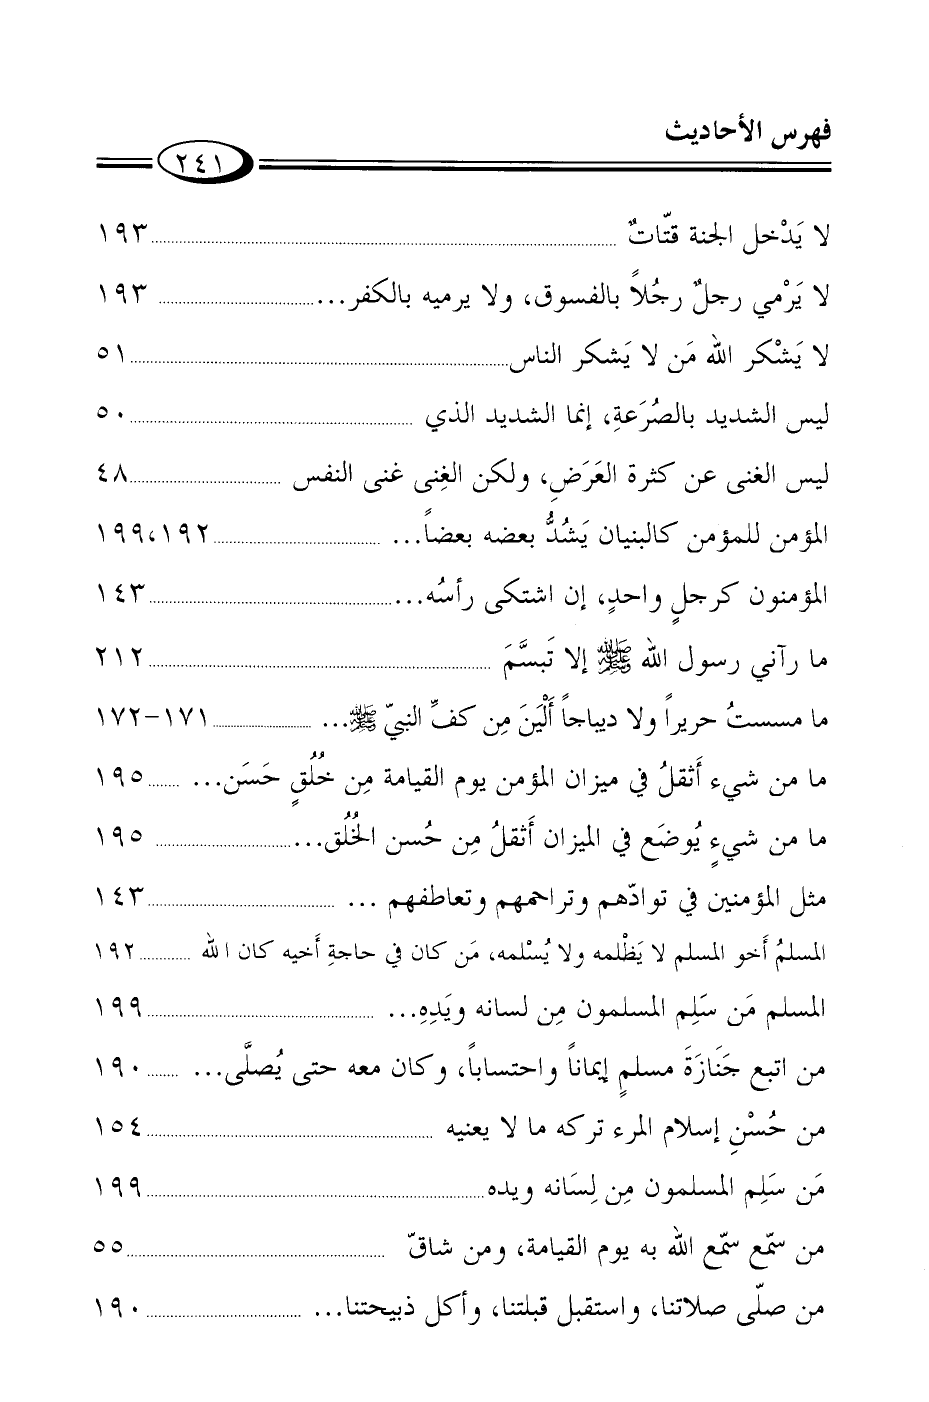 فهرس الأحاديث
٢٤١
لا يَدْخل الجنة قتّاتٌ ........ ١٩٣
لا يَرْمي رجلٌ رجُلاً بالفسوق، ولا يرميه بالكفر... ........ ١٩٣
لا يَشْكر الله مَن لا يَشكر الناس ........ ٥١
ليس الشديد بالصُرَعةِ، إنما الشديد الذي ........ ٥٠
ليس الغنى عن كثرة العَرَضِ، ولكن الغِنى غنى النفس ........ ٤٨
المؤمن للمؤمن كالبنيان يَشُدُّ بعضه بعضاً... ........ ١٩٢، ١٩٩
المؤمنون كرجلٍ واحدٍ، إن اشتكى رأسُه... ........ ١٤٣
ما رآني رسول الله ﷺ إلا تَبسَّمَ ........ ٢١٢
ما مسستُ حريراً ولا ديباجاً أَلْيَنَ مِن كفِّ النبيّ ﷺ... ........ ١٧١-١٧٢
ما من شيء أَثقلُ في ميزان المؤمن يوم القيامة مِن خُلُقٍ حَسَن... ........ ١٩٥
ما من شيءٍ يُوضَع في الميزان أَثقلُ مِن حُسن الخُلُق... ........ ١٩٥
مثل المؤمنين في توادّهم وتراحمهم وتعاطفهم ... ........ ١٤٣
المسلمُ أَخو المسلم لا يَظْلمه ولا يُسْلمه، مَن كان في حاجةِ أَخيه كان الله ........ ١٩٢
المسلم مَن سَلِم المسلمون مِن لسانه ويَدِهِ... ........ ١٩٩
من اتبع جَنَازَةَ مسلمٍ إيماناً واحتساباً، وكان معه حتى يُصلَّى... ........ ١٩٠
من حُسْنِ إسلام المرء تركه ما لا يعنيه ........ ١٥٤
مَن سَلِم المسلمون مِن لِسَانه ويده ........ ١٩٩
من سمّع سمّع الله به يوم القيامة، ومن شاقّ ........ ٥٥
من صلّى صلاتنا، واستقبل قبلتنا، وأكل ذبيحتنا... ........ ١٩٠